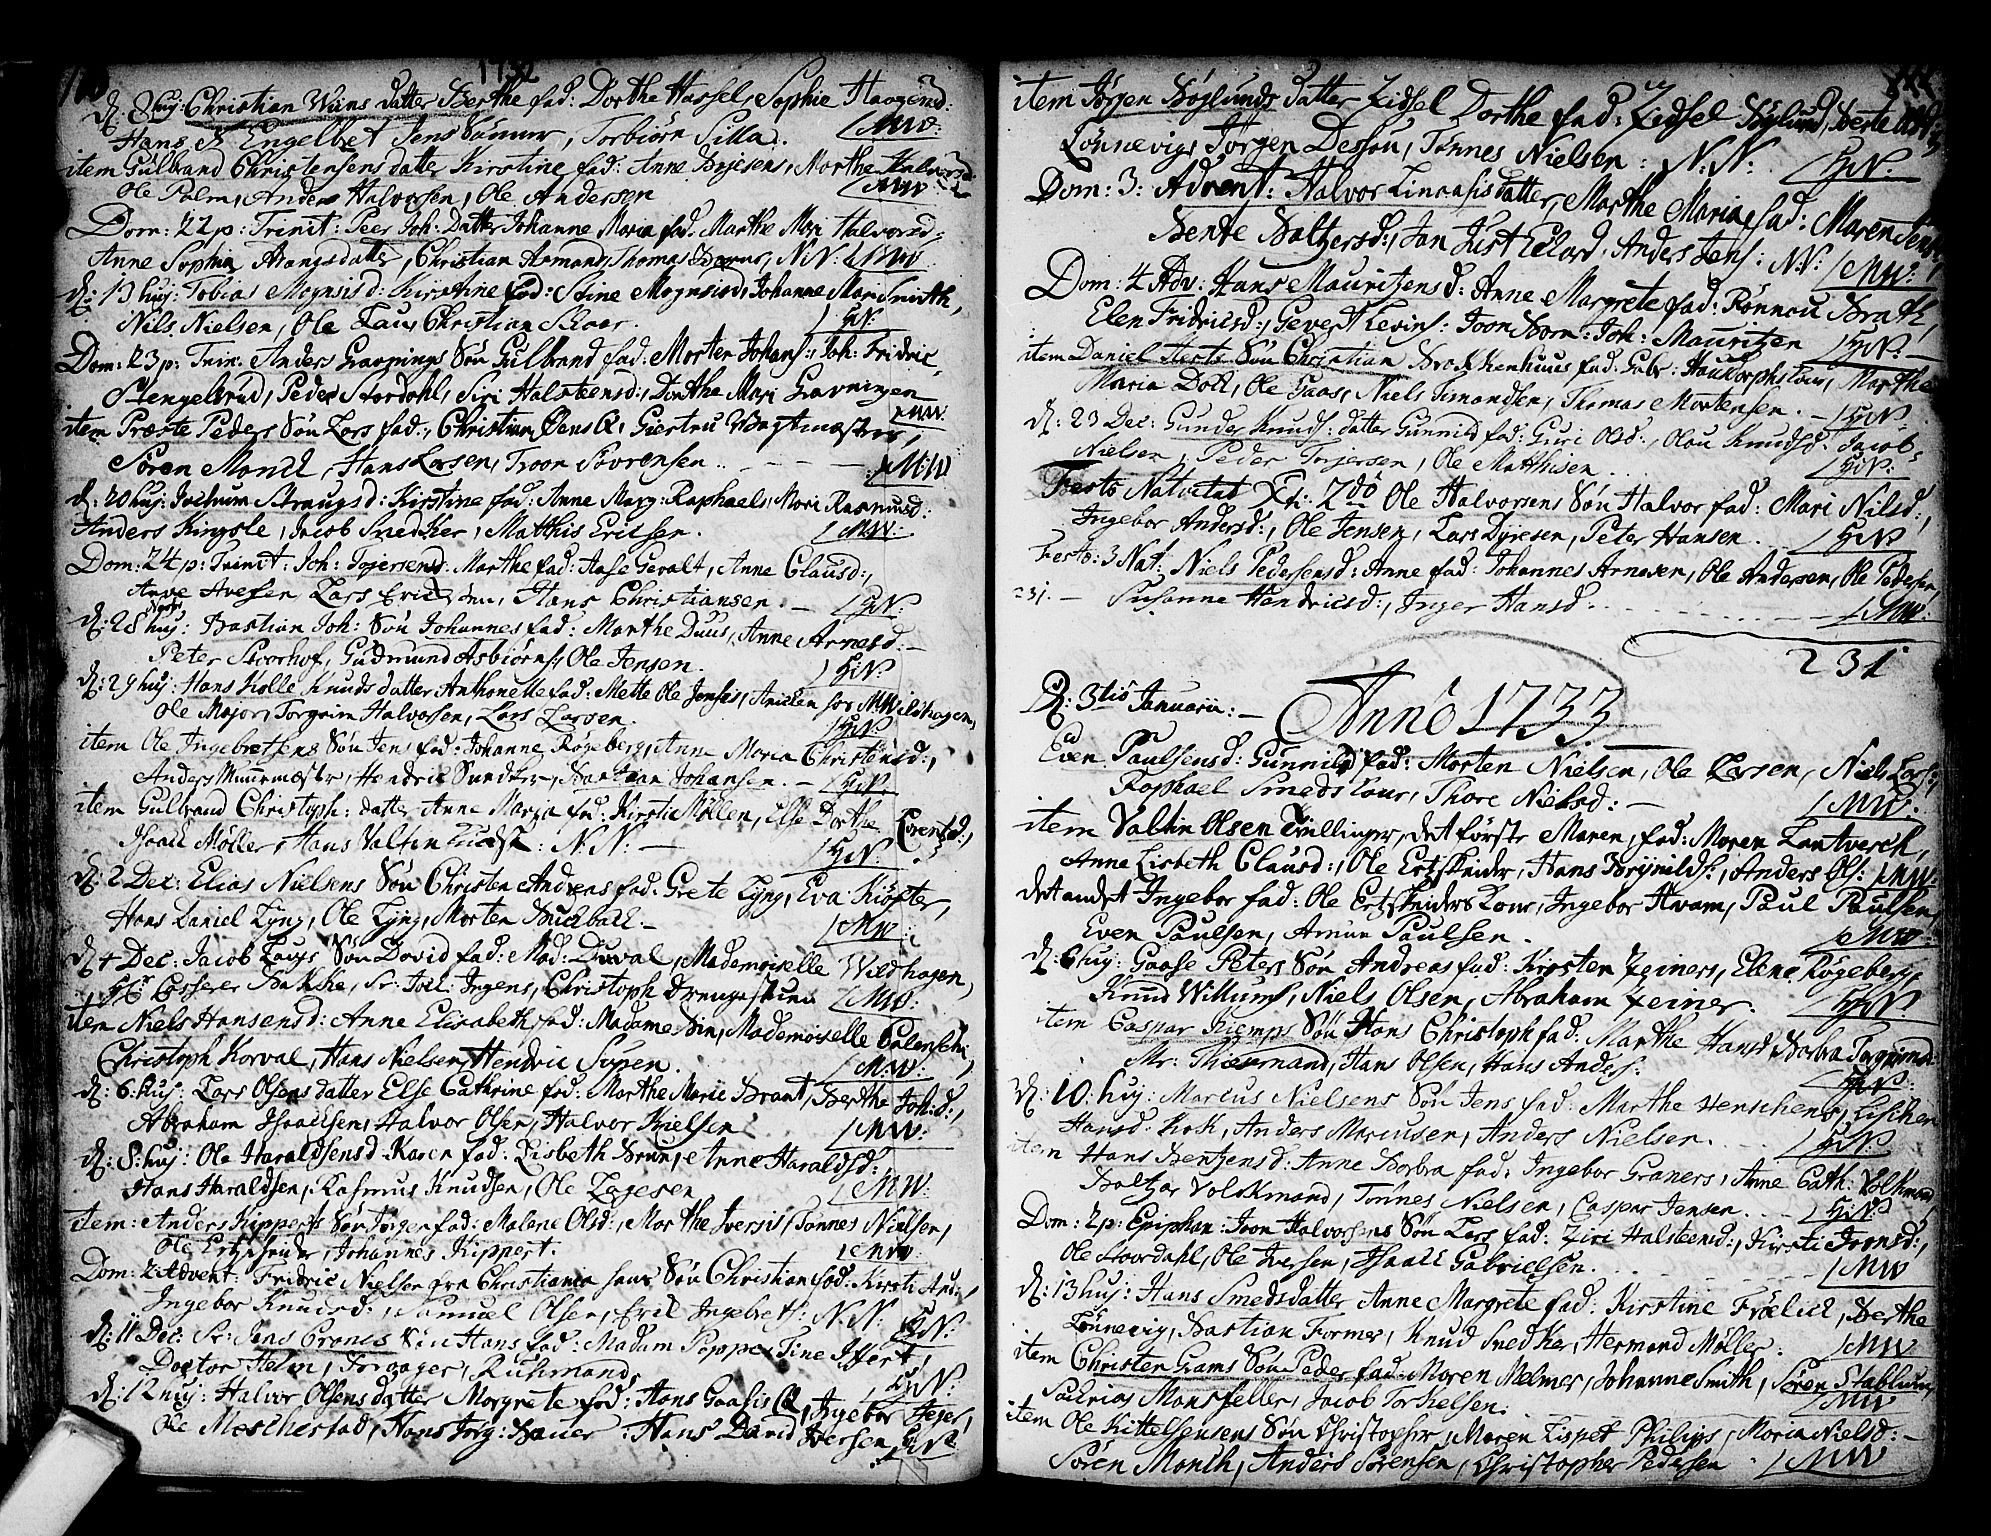 1732
d: 8 huj: Christian Wiins datter Berthe fad: Dorthe Hassel, Sophie Haagensd:
Hans Engelbret Jens, Torbiörn Silla. MW:
item Gulbrand Christensens datter Kirstine fad: Anne, Marthe Halvorsd:
Ole Palm, Anders Halvorsen, Ole Anderson MW
Dom: 22 p: Trinit: Peer Joh: Datter Johanne Maria fad: Marthe Mari Halvorsd:
Anne Sophia datter, Christian Armand, Thomas, N.N: MW
d: 13 huj: Tobias Mognsis d: Kirstine fad: Stine Mognsis, Johanne Mar: Smith,
Nils Nielsen, Ole, Christian. H:N:
Dom: 23 p: Trin: Anders Gravnings Sön Gulbrand fad: Morten Johans: Joh: Fridric
Stengelsrud, Peder Stordahl, Siri Halsteensd:, Dorthe Mari Gravningen
MW.
item Præste Peders Sön Lars fad:, Christian Jens Q: Giertru Wagtmester,
Sören Monck, Hans Larsen, Troon Sövrensen MW
d: 20 huj: Jochum d: Kirstine fad: Anne Marg: Raphaels, Mari Rasmusd:
Anders Kingsle, Jacob Snedker, Matthis Ericsen. MW.
Dom: 24 p: Trinit: Joh: Tojersens d: Marthe fad: Aase Geralt, Anne Clausd:,
Lars Erichsen, Hans Christiansen. H:N:
d: 28 huj: Bastian Joh: Sön Johannes fad: Marthe Duus, Anne Arnesd:
Peter Storhof, Gudmund Asbiörns: Ole Jensen. H:N:
d: 29 huj: Hans Kolle Knuds datter Anthonette fad: Mette Ole Jenses, Anicken hos MWildhagen,
Ole Major, Torgrim Halvorsen, Lars Larsen. H:N:
item Ole Ingebretsens Sön Jens fad: Johanne Rögeberg, Anne Maria Christensd:,
Anders Muurmester, Hendric Snedker, Bastian Johansen. H:N:
item Gulbrand Christoph: datter Anne Maria fad: Kirsti Möllen, Else Dorthe Lorentzd:,
Isaac Möller, Hans Valtin: N.N: H:N:
d: 2 Dec: Elias Nielsens Sön Christen Andreas fad: Grete Lyng, Eva Kiöster,
Hans Daniel Lyng, Ole Lyng, Morten. MW
d: 4 Dec: Jacob Sön David fad: Mad: Duval, Mademoiselle Wildhagen,
Hr Assessor Bakke, Sr: Joel Ingens, Christoph MW
item Niels Hansens d: Anne Elisabeth fad: Madame, Mademoiselle
Christoph Korval, Hans Nielsen, Hendric. M:W:
d: 6 huj: Lars Olsens datter Else Cathrine fad: Marthe Marie Brant, Berthe Joh:d:,
Abraham Isaachsen, Halvor Olsen, Halvor Kielsen MW:
d: 8 huj: Ole Haraldsens d: Karen fad: Lisbeth Brun, Anne Haraldsd:,
Hans Haraldsen, Rasmus Knudsen, Ole Lagesen MW:
item: Anders Kipperts Sön Jörger fad: Malene Olsd:, Marthe Iversis, Tönnes Nielsen,
Ole Ertzscheider, Johannes Kippert. MW
Dom: 2 Advent: Fridric Nielsen fra Christiania hans Sön Christian fad: Kirsti And:,
Ingebor Knudsd:, Samuel Olsen, Eric Ingebrets: N.N: H:N:
d: 11 Dec: Sr: Jens Sön Hans fad: Madam Poppe, Tine,
Doctor Helm, Forgager, Ruhmand, H:N:
d: 12 huj: Halvor Olsens datter Margrete fad: Hans Gaasis Q, Ingebor Jeger,
Ole, Hans Jörg: Bauer: Hans David Iversen H:N:
item Jörgen Böglunds datter Zidsel Dorthe fad: Zidsel Böglund, Berte
Lönnevig, Jörgen Dessou, Tönnes Nielsen: N:N: H:N:
Dom: 3: Advent: Halvor datter, Marthe Maria fad: Maren
Bente Baltzersd:, Jan Just, Anders Jens: N.N: MW:
Dom: 4 Adv: Hans Mauritzens d: Anne Margrete fad: Rönnau Brath,
Elen Fridricsd:, Gevert Levins: Joon: Joh: Mauritzen H:N:
item Daniel Sön Christian fad: Gabr:, Marthe
Maria Doll, Ole Gaas, Niels Simondsen, Thomas Mortensen. H:N:
d: 23 Dec: Gunder Knuds: datter Gunnild fad: Guri Olsd:, Olau Knudsd: Jacob
Nielsen, Peder Torjersen, Ole Matthisen. H:N:
Festo Natvitat Xti: 2do Ole Halvorsens Sön Halvor fad: Mari Nilsd:,
Ingebor Andersd:, Ole Jensen, Lars Dyresen, Peter Hansen. H:N
Festo: 3 Nat: Niels Pedersens d: Anne fad: Johannes Arnesen, Ole Andersen, Ole Pedersen,
231. Susanne Hendricsd:, Inger Hansd. MW:
231
Anno 1733
d: 3tio Januarii:
Even Paulsens d: Gunnild fad: Morten Nielsen, Ole Larsen, Niels Lars:,
Raphael Smeds Kone, Thore Nielsd: MW.
item Valtin Olsen Trillinger, det förste Maren, fad: Maren Lantverck,
Anne Lisbeth Clausd:, Ole Ertzskeider, Hans Brynilds:, Anders Ols: MW:
det andet Ingebor fad: Ole Ertzskeiders Kone, Ingebor Hvam, Paul Paulsen,
Even Paulsen, Amun Paulsen. MW:
d: 6 huj: Gaase Peters Sön Andreas fad: Kirsten Zeiners, Elene Rögeberg,
Knud Willums:, Niels Olsen, Abraham Zeiner. H:N:
item Caspar Kiemps Sön Hans Christoph fad: Marthe Hansd:, Barbra
Mr: Thiesmand, Hans Olsen, Hans Anders: H:N:
d: 10: huj: Marcus Nielsens Sön Jens fad: Marthe Henschens, Lisichen
Hansd: Kok, Anders Marcusen, Anders Nielsen. H:N:
item Hans Bentzens d: Anne Barbra fad: Ingebor Graners, Anne Cath: Volkmand,
Baltzar Volckmand, Tönnes Nielsen, Caspar Jensen. H:N:
Dom: 2 p: Epiphan: Joon Halvorsens Sön Lars fad: Ziri Halsteensd:, Kirsti Joonsd:,
Ole Stoordahl, Ole Iversen, Isaac Gabrielsen. MW
d: 13 huj: Hans Smeds datter Anne Margrete fad: Kirstine Frölich, Berthe
Lönnevig, Bastian Former, Knud Snedker, Hermand Möller: MW
item Christen Grams Sön Peder fad: Maren Melmer, Johanne Smith, Sören Stablum,
Sacarias Mansfeller, Jacob Torkelsen. MW
item Ole Kittelsensens Sön Christopher, Maren Lispet Philips, Maria Nielsd:
Sören Monch, Anders Sörensen, Christopher Pedersen. MW